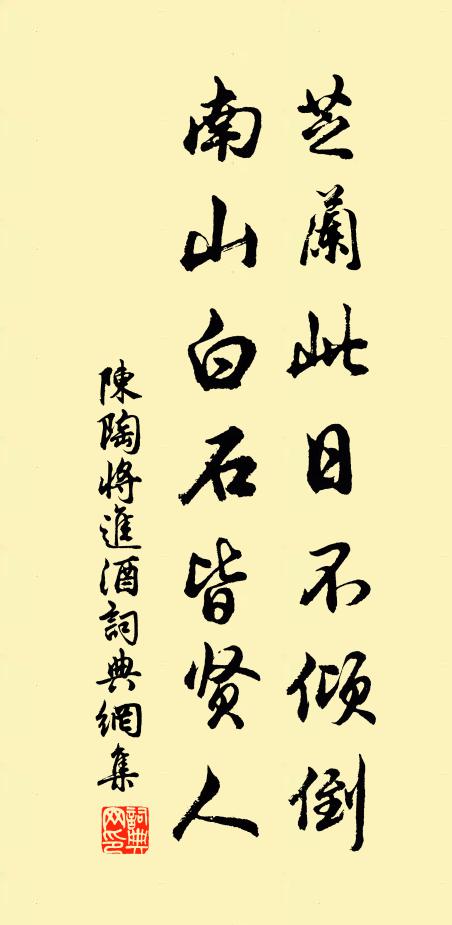 芝蘭此日不傾倒
南山白石皆贤人
陳陶將進酒詞典網集
詞典
网印